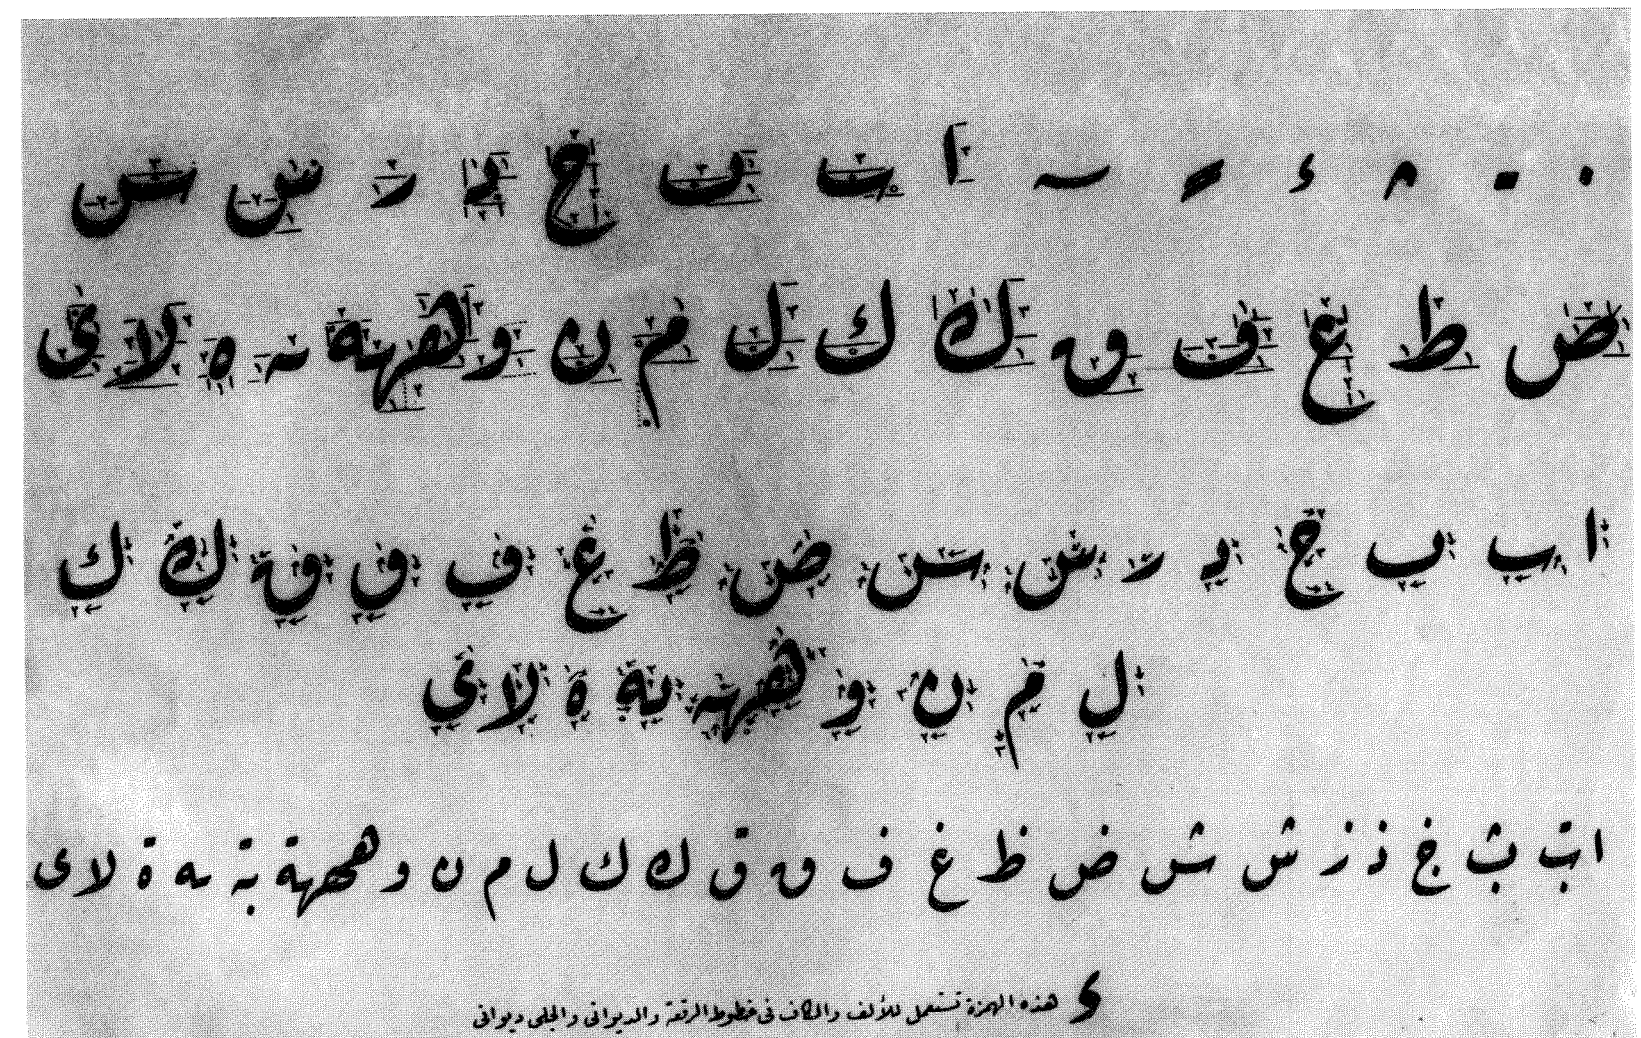 ء ا ب ب ح د ر س س
ض ط ع ف ق ك ك ل م ن و ههہة ہ ه لا ى
ا ب ب ح د ر س س ض ط ع ف ق ق ك ك
ل م ن و ههہ ہة ة لا ى
ا ب ث خ ذ ز ش ش ض ظ غ ف ق ق ك ك ل م ن و ههہة بة ہه ة لا ى
ء هذه الهمزة تستعمل للألف والكاف فى خطوط الرقعة والديوانى والجلى ديوانى